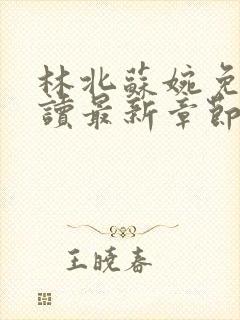 林北蘇婉免
讀最新章節
王曉春